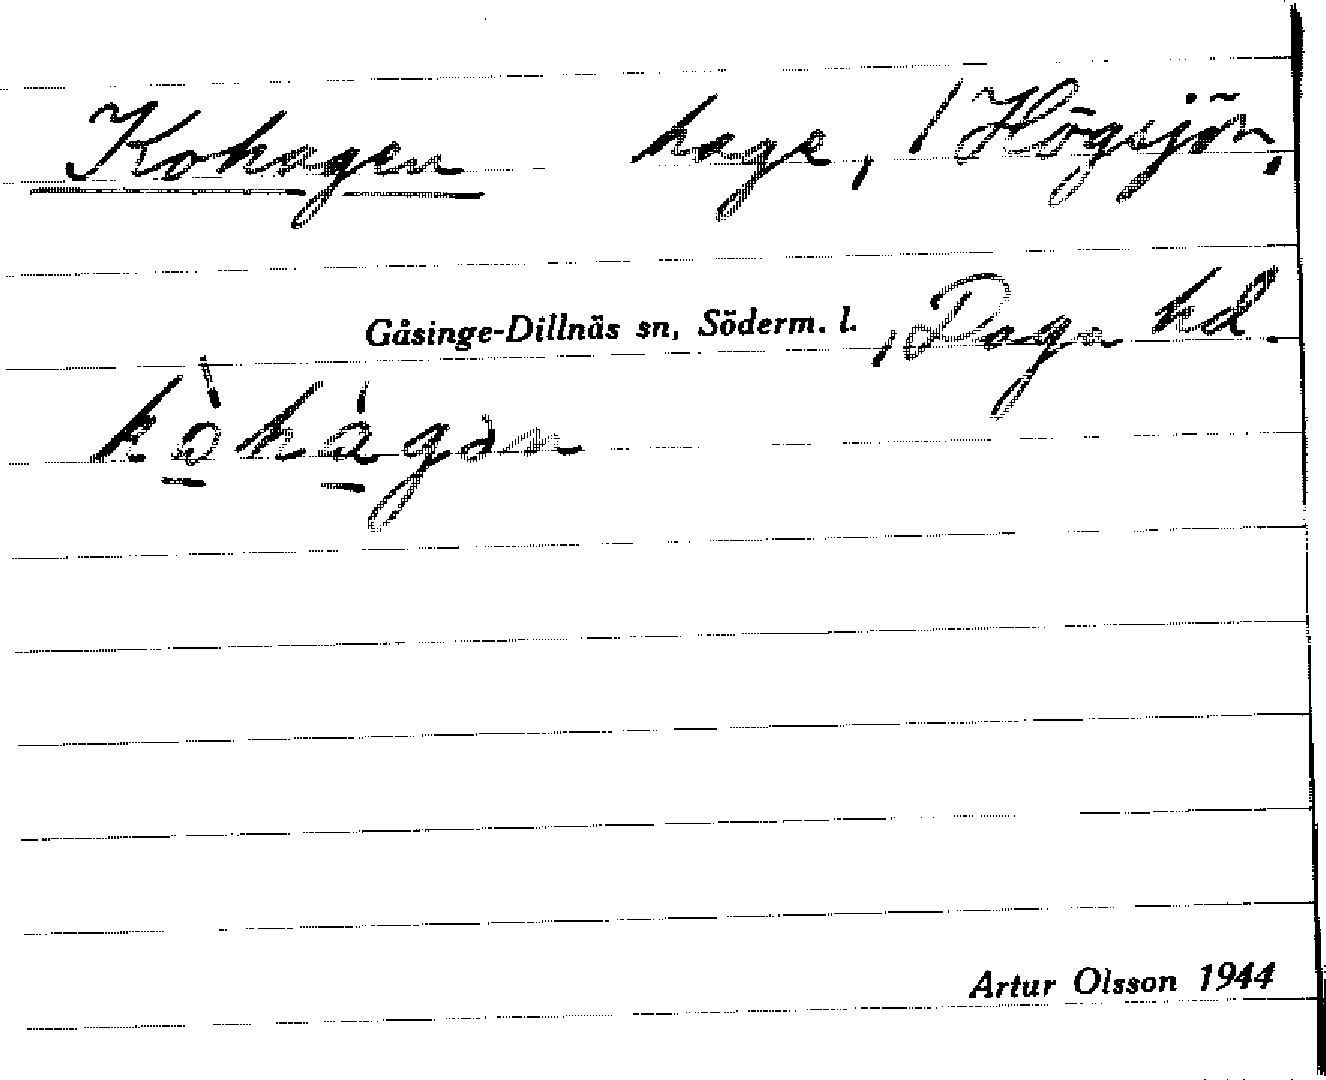 Kohagen hage, / Högsjön,
Gåsinge-Dillnäs sn, Söderm. l. , Daga hd.
kòhágən
Artur Olsson 1944